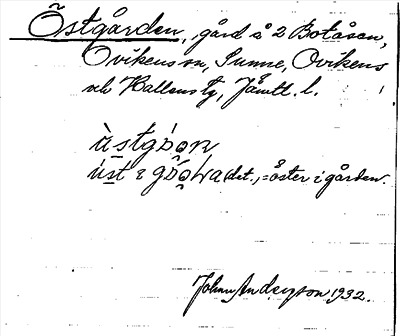 Östgården, gård å 2 Botåsen,
Ovikens sn, Sunne, Ovikens
och Hallens tg, Jämtl. l.
ùstgó̰ǫn
úst i gó̰ǫɳa (det., = öster i gården.
Johan Anderson 1932.